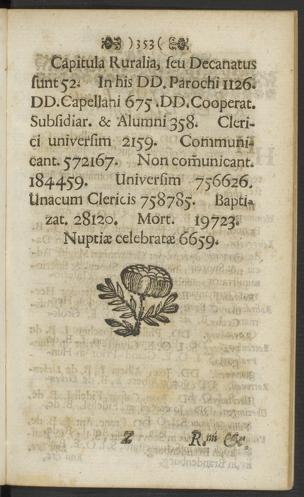 )353(
Capitula Ruralia, seu Decanatus
sunt 52. In his DD. Parochi 1126.
DD. Capellani 675. DD. Cooperat.
Subsidiar. & Alumni 358. Cleri-
ci universim 2159. Communi-
cant. 572167. Non com̄unicant.
184459. Universim 756626.
Unacum Clericis 758785. Bapti-
zat. 28120. Mort. 19723.
Nuptiæ celebratæ 6659.
Z R.mi &c.